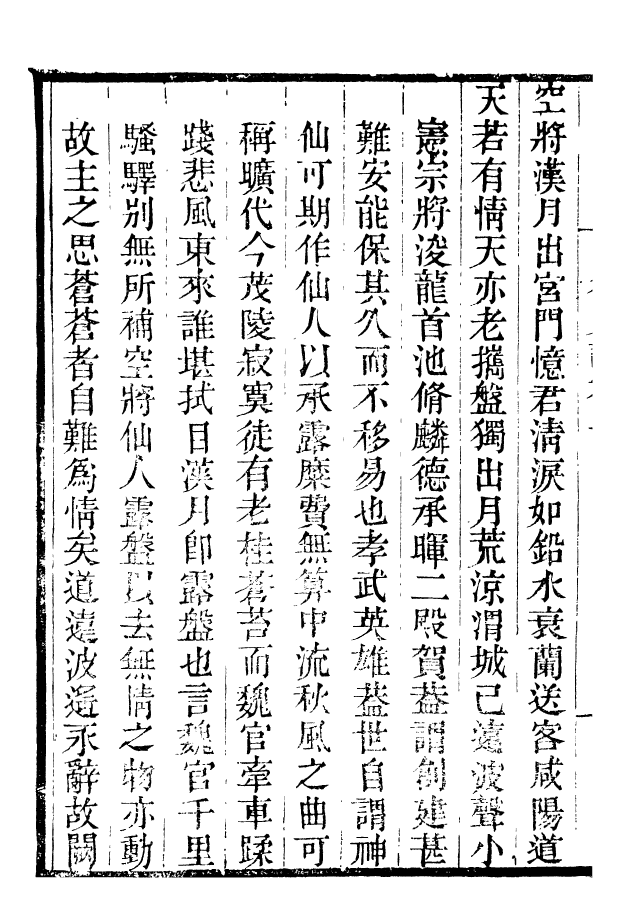 空將漢月出宮門憶君清淚如鉛水衰蘭送客咸陽道
天若有情天亦老攜盤獨出月荒涼渭城已遠波聲小
憲宗將浚龍首池脩麟德承暉二殿賀葢謂創建甚
難安能保其久而不移易也孝武英雄葢世自謂神
仙可期作仙人以承露糜費無算中流秋風之曲可
稱曠代今茂陵寂寞徒有老桂蒼苔而魏官牽車蹂
踐悲風東來誰堪拭目漢月卽露盤也言魏官千里
騷驛別無所補空將仙人露盤以去無情之物亦動
故主之思蒼蒼者自難爲情矣道遠波遙永辭故闕